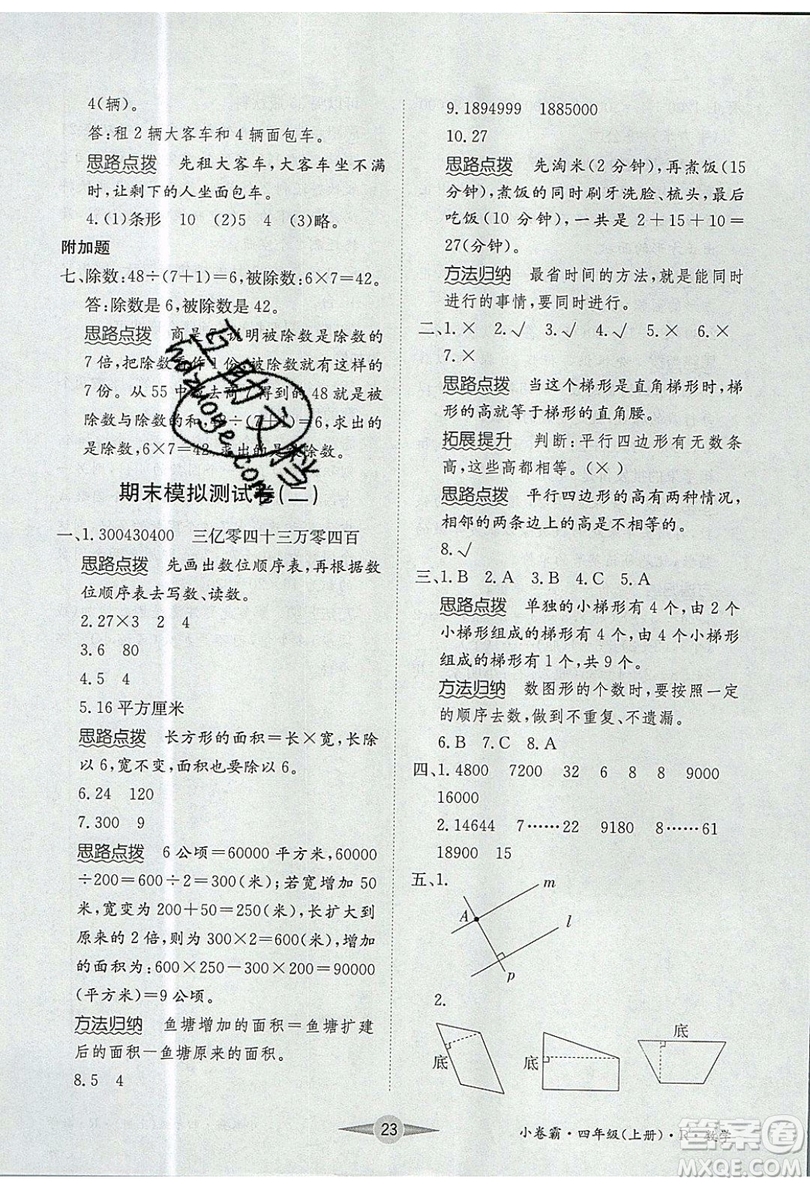 4(辆)。
答:租 2 辆大客车和 4 辆面包车。
思路点拨 先租大客车,大客车坐不满
时,让剩下的人坐面包车。
4.(1)条形 10 (2)5 4 (3)略。
附加题
七、除数:48÷(7+1)=6,被除数:6×7=42。
答:除数是 6,被除数是 42。
思路点拨 商是 说明被除数是除数的
7 倍,把除数看作 1 份,被除数就有这样的
7 份。从 55 中 去商,得到的 48 就是被
除数与除数的和, ÷ =6,求出的
是除数,6×7=42,求出的是被除数。
期末模拟测试卷(二)
一、1.300430400 三亿零四十三万零四百
思路点拨 先画出数位顺序表,再根据数
位顺序表去写数、读数。
2.27×3 2 4
3.6 80
4.5 4
5.16 平方厘米
思路点拨 长方形的面积=长×宽,长除
以 6,宽不变,面积也要除以 6。
6.24 120
7.300 9
思路点拨 6 公顷=60000 平方米,60000
÷200=600÷2=300(米);若宽增加 50
米,宽变为 200+50=250(米),长扩大到
原来的 2 倍,则为 300×2=600(米),增加
的面积为:600×250-300×200=90000
(平方米)=9 公顷。
方法归纳 鱼塘增加的面积=鱼塘扩建
后的面积-鱼塘原来的面积。
8.5 4
9.1894999 1885000
10.27
思路点拨 先淘米(2 分钟),再煮饭(15
分钟),煮饭的同时刷牙洗脸、梳头,最后
吃饭(10 分钟),一共是 2+15+10=
27(分钟)。
方法归纳 最省时间的方法,就是能同时
进行的事情,要同时进行。
二、1.× 2.√ 3.√ 4.√ 5.× 6.×
7.×
思路点拨 当这个梯形是直角梯形时,梯
形的高就等于梯形的直角腰。
拓展提升 判断:平行四边形有无数条
高,且都相等。(×)
思路点拨 平行四边形的高有两种情况,
相邻的两条边上的高是不相等的。
8.√
三、1.B 2.A 3.B 4.C 5.A
思路点拨 单独的小梯形有 4 个,由 2 个
小梯形组成的梯形有 4 个,由 4 个小梯形
组成的梯形有 1 个,一共 9 个。
方法归纳 数图形的个数时,要按照一定
的顺序去数,做到不重复、不遗漏。
6.B 7.C 8.A
四、1.4800 7200 32 6 8 8 9000
16000
2.14644 7……7 9180 8……61
18900 15
五、1.
m
A
l
p
2.
底
底
底
23
小卷霸·四年级(上册)·R·数学
答案圈
MXQE.COM